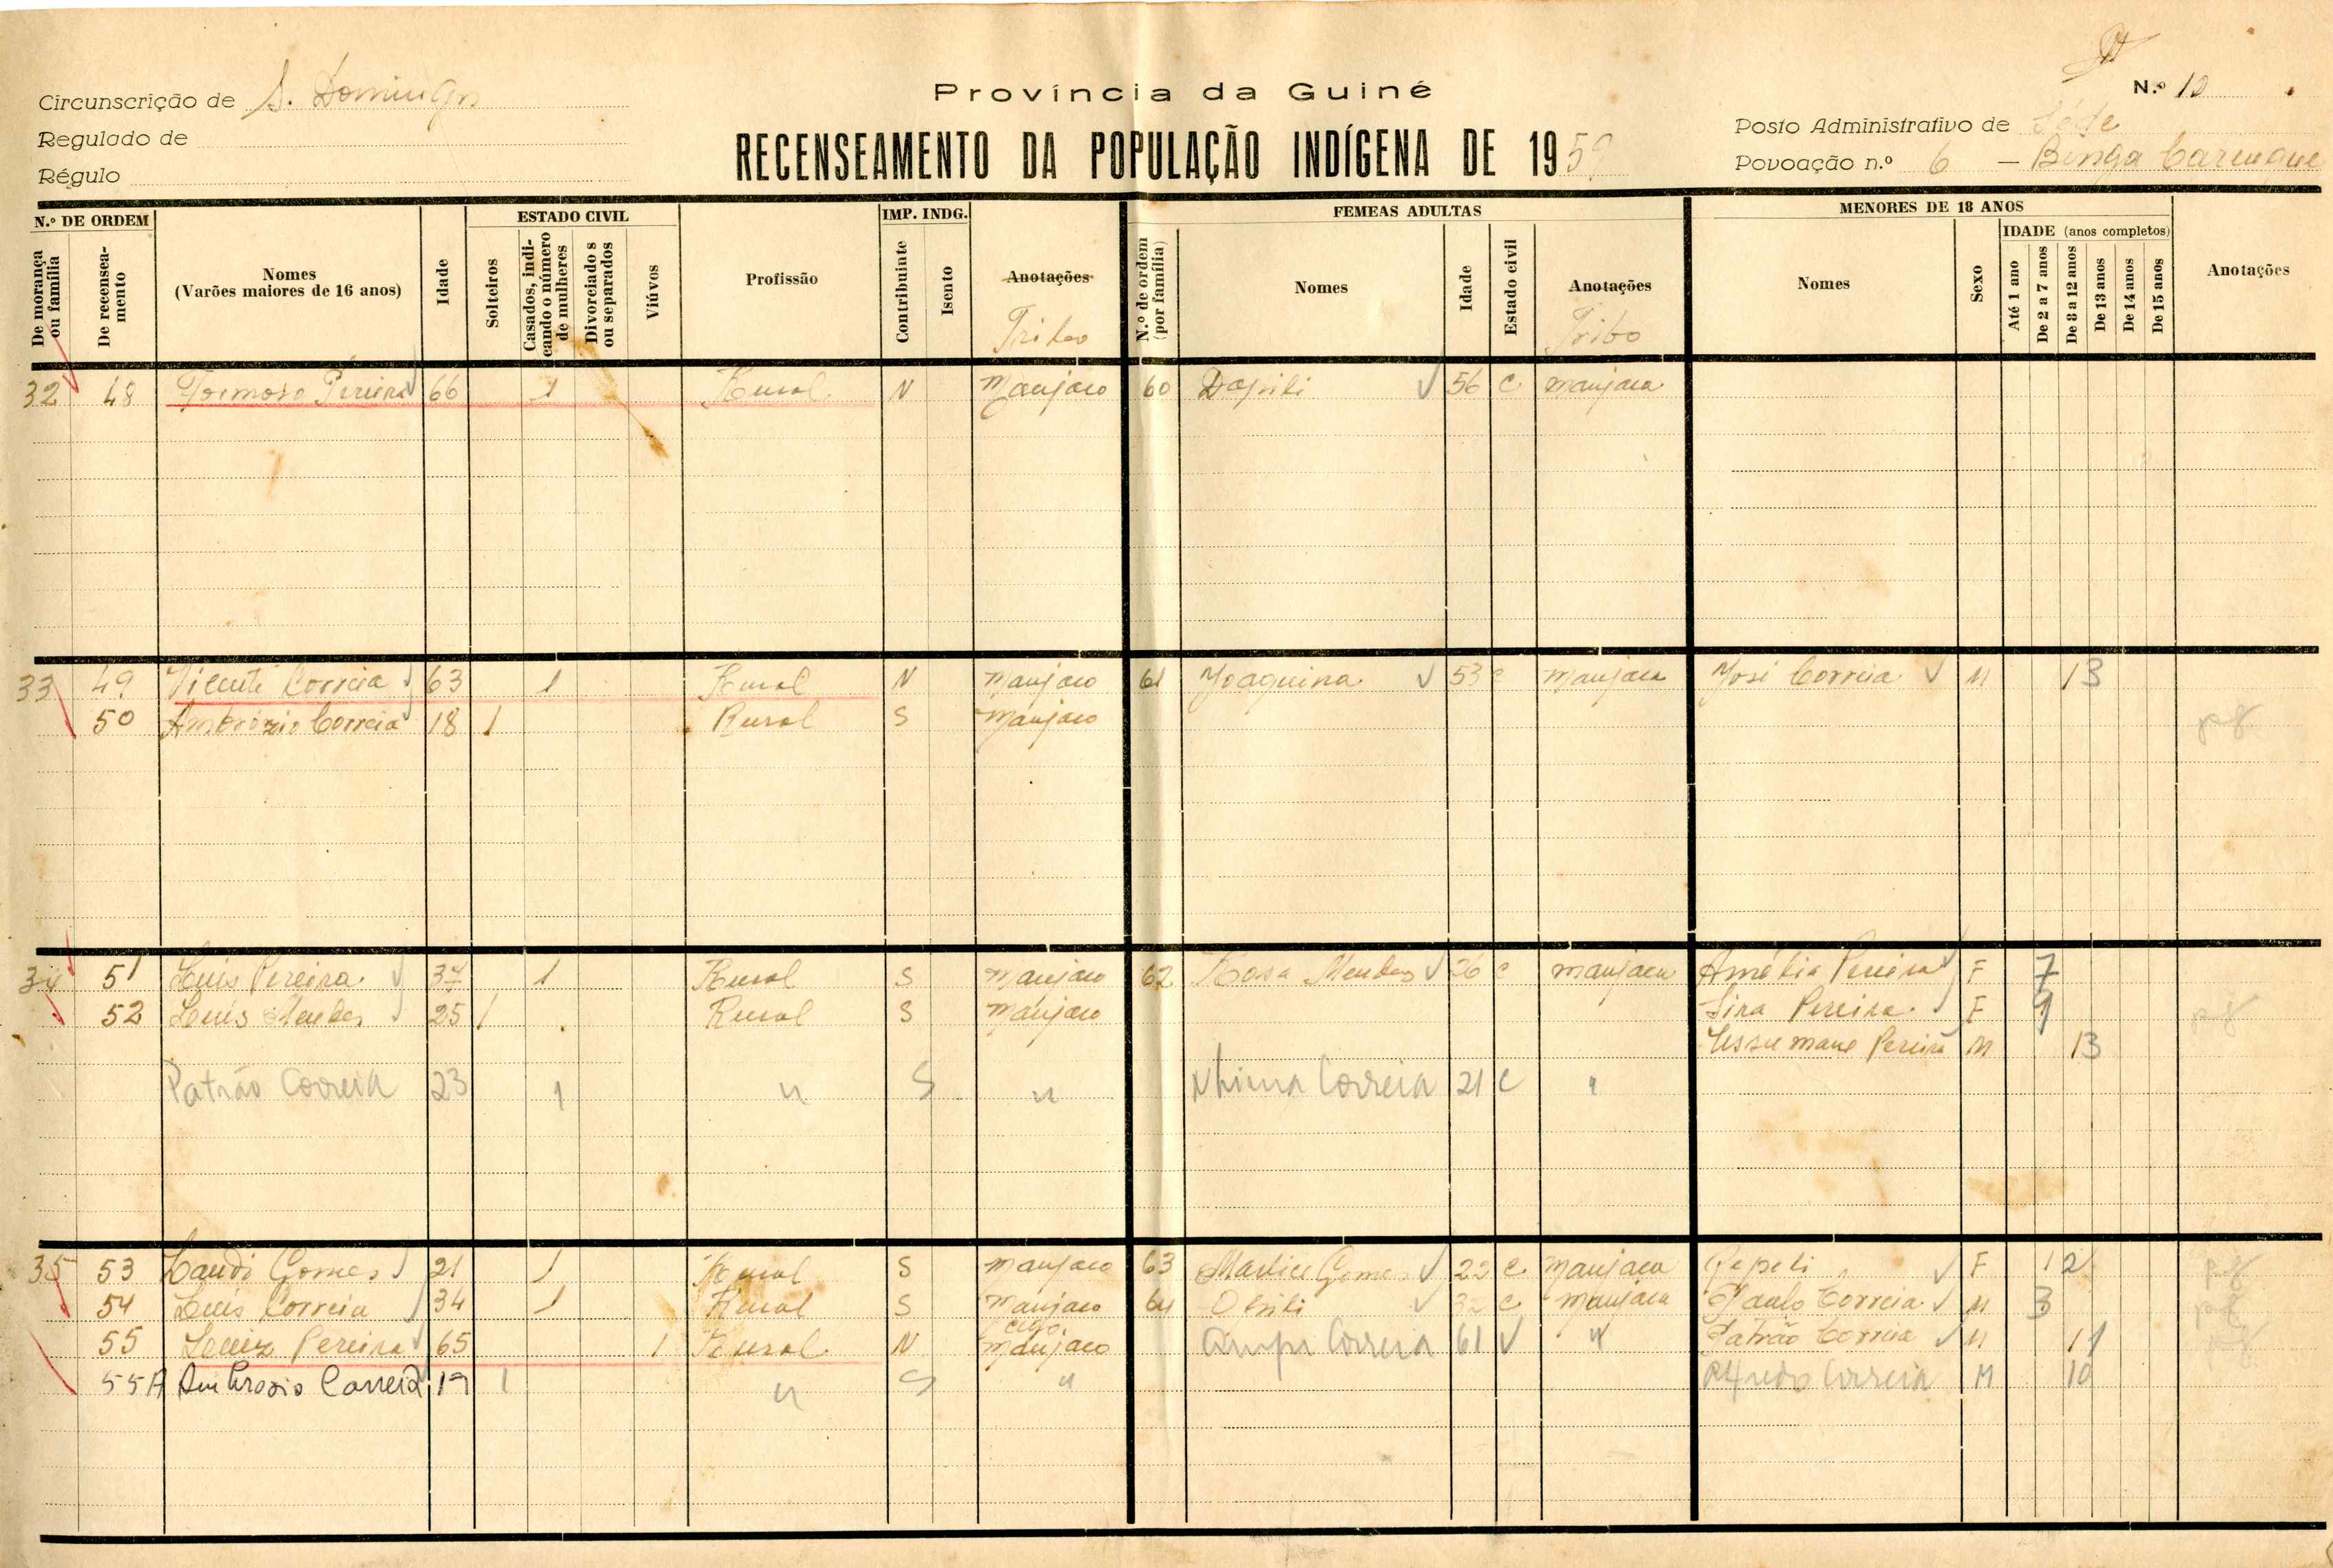 Circunscrição de S. Domingos
Regulado de
Régulo
Província da Guiné
RECENSEAMENTO DA POPULAÇÃO INDÍGENA DE 1959
N.º 10
Posto Administrativo de Séde
Povoação n.º 6 — Binga Carenque
N.º DE ORDEM
De morança ou família
De recenseamento
Nomes
(Varões maiores de 16 anos)
Idade
ESTADO CIVIL
Solteiros
Casados, indicando o número de mulheres
Divorciados ou separados
Viúvos
Profissão
IMP. INDG.
Contribuinte
Isento
Anotações
Tribo
FEMEAS ADULTAS
N.º de ordem (por família)
Nomes
Idade
Estado civil
Anotações
Tribo
MENORES DE 18 ANOS
Nomes
Sexo
IDADE (anos completos)
Até 1 ano
De 2 a 7 anos
De 8 a 12 anos
De 13 anos
De 14 anos
De 15 anos
Anotações
32 48 Formoso Pereira 66 1 Rural N Manjaco 60 Dapili 56 C Manjaca
33 49 Vicente Correia 63 1 Rural N Manjaco 61 Joaquina 53 C Manjaca José Correia M 13
50 Ambrózio Correia 18 1 Rural S Manjaco
34 51 Luís Pereira 37 1 Rural S Manjaco 62 Rosa Mendes 26 C Manjaca Amélia Pereira F 7
52 Luís Mendes 25 1 Rural S Manjaco Sira Pereira F
Ussumane Pereira M 13
Patrão Correia 23 1 " S " Nhima Correia 21 C "
35 53 Laudi Gomes 21 1 Rural S Manjaco 63 Gomes 22 C Manjaca Pepeli F 12
54 Luís Correia 34 1 Rural S Manjaco 64 32 C Manjaca Paulo Correia M 3
55 Luiz Pereira 65 1 Rural N cego Manjaco Correia 61 V " Patrão Correia M 11
55A Ambrosio Correia 19 1 " S " Alfredo Correia M 10